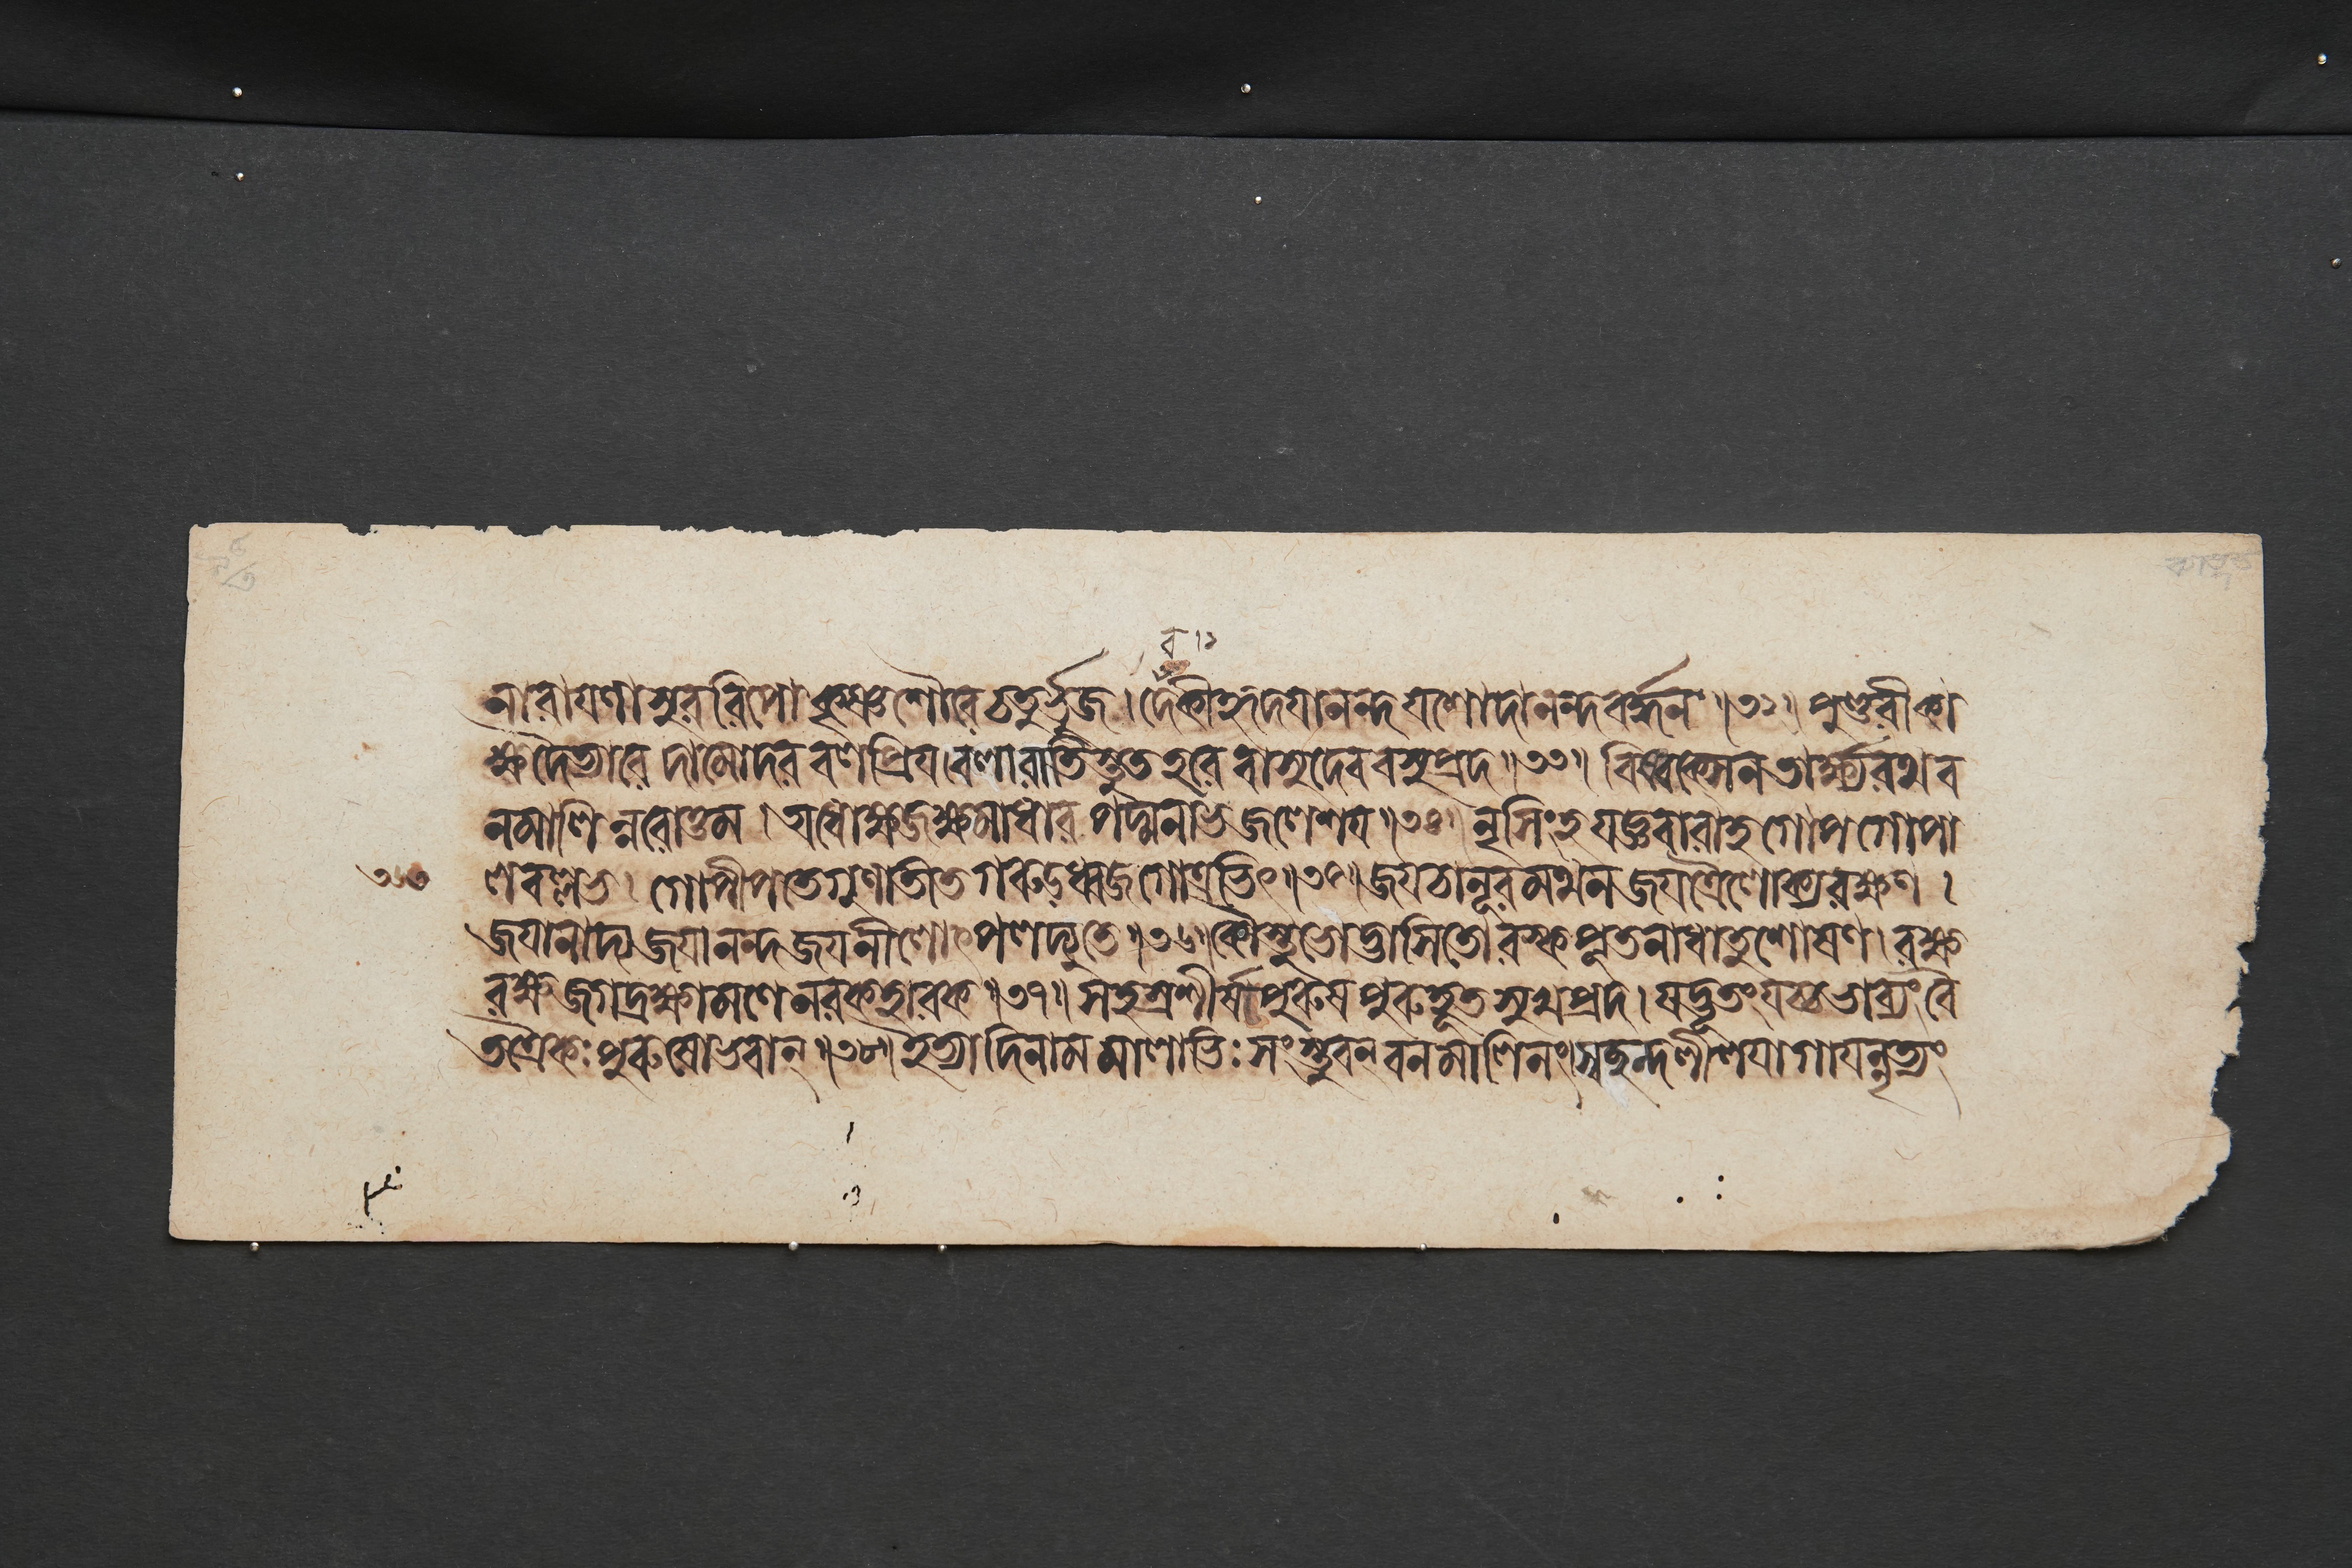 ব ১
নারায়ণাসুররিপো কৃষ্ণ শৌরে চতুর্ভুজ । দেকীহৃদয়ানন্দ যশোদানন্দবর্দ্ধন ॥৩২॥ পুণ্ডরীকা
ক্ষ দৈত্যারে দামোদর বলপ্রিয় । বলারাতিস্তুত হরে বাসুদেব বসুপ্রদ ॥৩৩॥ বিষ্বক্সেন তার্ক্ষ্যরথ ব
নমালিন্নরোত্তম । অধোক্ষজ ক্ষমাধার পদ্মনাভ জলেশয় ॥৩৪॥ নৃসিংহ যজ্ঞবারাহ গোপগোপা
লবল্লভ । গোপীপতে গুণাতিত গরুড়ধ্বজ গোত্রভিৎ ॥৩৫॥ জয় চানূরমথন জয় ত্রৈলোক্যরক্ষণ ।
জয়ানাদ্য জয়ানন্দ জয় নীলোৎপলদ্যুতে ॥৩৬॥ কৌস্তুভোদ্ভাসিতোরস্ক পূতনাধাতুশোষণ । রক্ষ
রক্ষ জগদ্রক্ষামণে নরকহারক ॥৩৭॥ সহস্রশীর্ষা পুরুষ পুরুহূত সুখপ্রদ । যদ্ভূতং যচ্চ ভাব্যং বৈ
তত্রৈকঃ পুরুষো ভবান্ ॥৩৮॥ ইত্যাদি নামমালাভিঃ সংস্তুবন্ বনমালিনং । স্বচ্ছন্দলীলয়া গায়ন্নৃত্যং